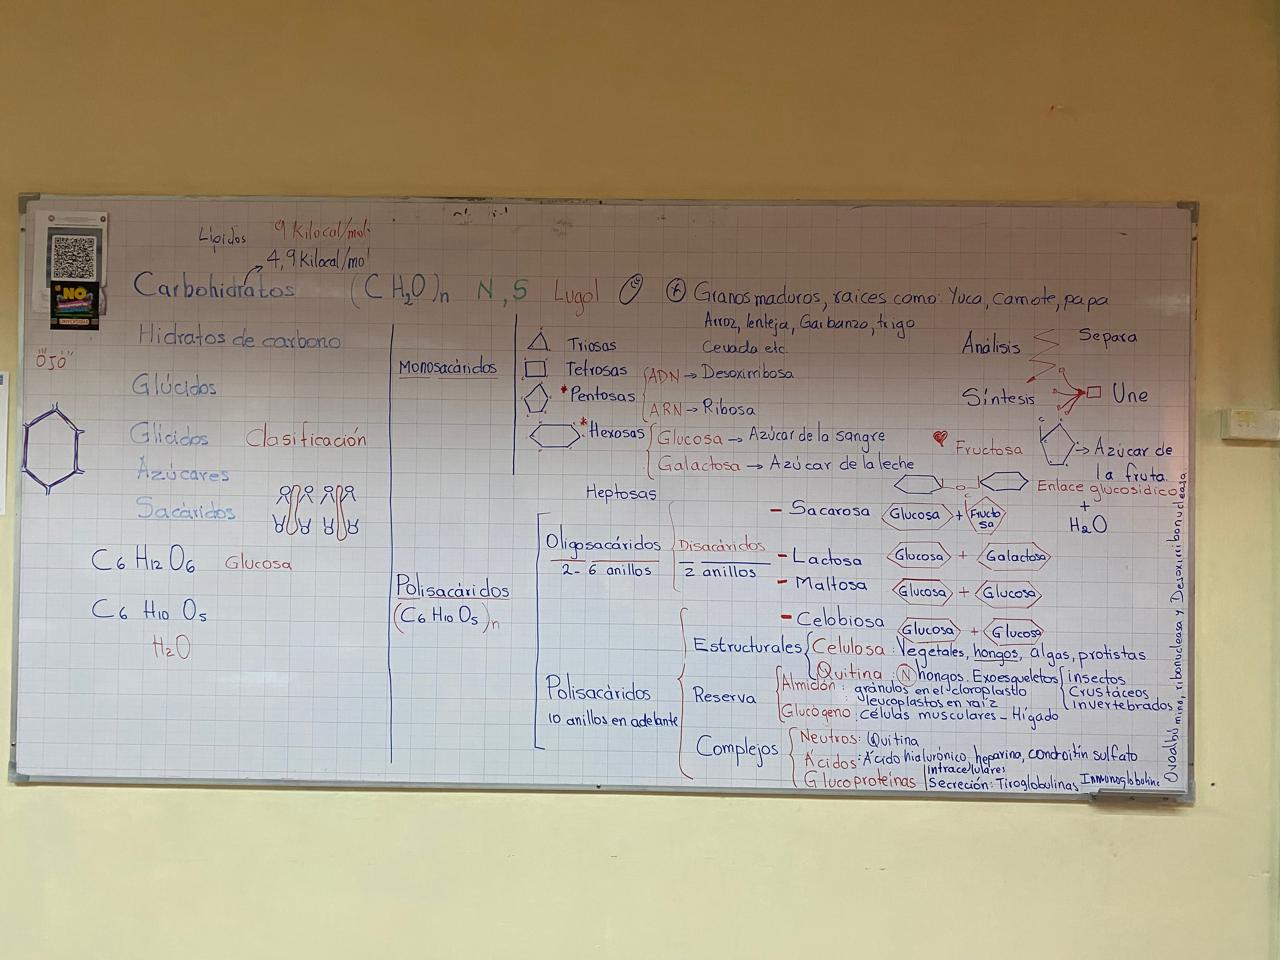 Lípidos 9 Kilocal/mol
4,9 Kilocal/mol
Carbohidratos (CH2O)n N, S Lugol + Granos maduros, raíces como: Yuca, Camote, papa
Arroz, lenteja, Garbanzo, trigo
Cevada etc.
NO
Hidratos de carbono
"OJO"
Glúcidos
Glicidos Clasificación
Azúcares
Sacáridos
C6 H12 O6 Glucosa
C6 H10 O5
H2O
Monosacáridos
Triosas
Tetrosas
*Pentosas
ADN → Desoxirribosa
ARN → Ribosa
*Hexosas
Glucosa → Azúcar de la sangre
Galactosa → Azúcar de la leche
Heptosas
Análisis Separa
Síntesis Une
Fructosa C → Azúcar de
la fruta.
O
C
Enlace glucosídico
+
H2O
Polisacáridos
(C6 H10 O5)n
Oligosacáridos
2-6 anillos
Disacáridos
2 anillos
- Sacarosa Glucosa + Fructo
sa
- Lactosa Glucosa + Galactosa
- Maltosa Glucosa + Glucosa
- Celobiosa Glucosa + Glucosa
Polisacáridos
10 anillos en adelante
Estructurales
Celulosa: Vegetales, hongos, algas, protistas
Quitina: N hongos. Exoesqueletos
insectos
Crustáceos
invertebrados
Reserva
Almidón: gránulos en el cloroplasto
: leucoplastos en raíz
Glucógeno: células musculares - Hígado
Complejos
Neutros: Quitina
Ácidos: Ácido hialurónico, heparina, condroitín sulfato
Glucoproteínas
Intracelulares
Secreción: Tiroglobulinas Inmunoglobuline
Ovoalbúmina, ribonucleasa y Desoxirribonucleasa